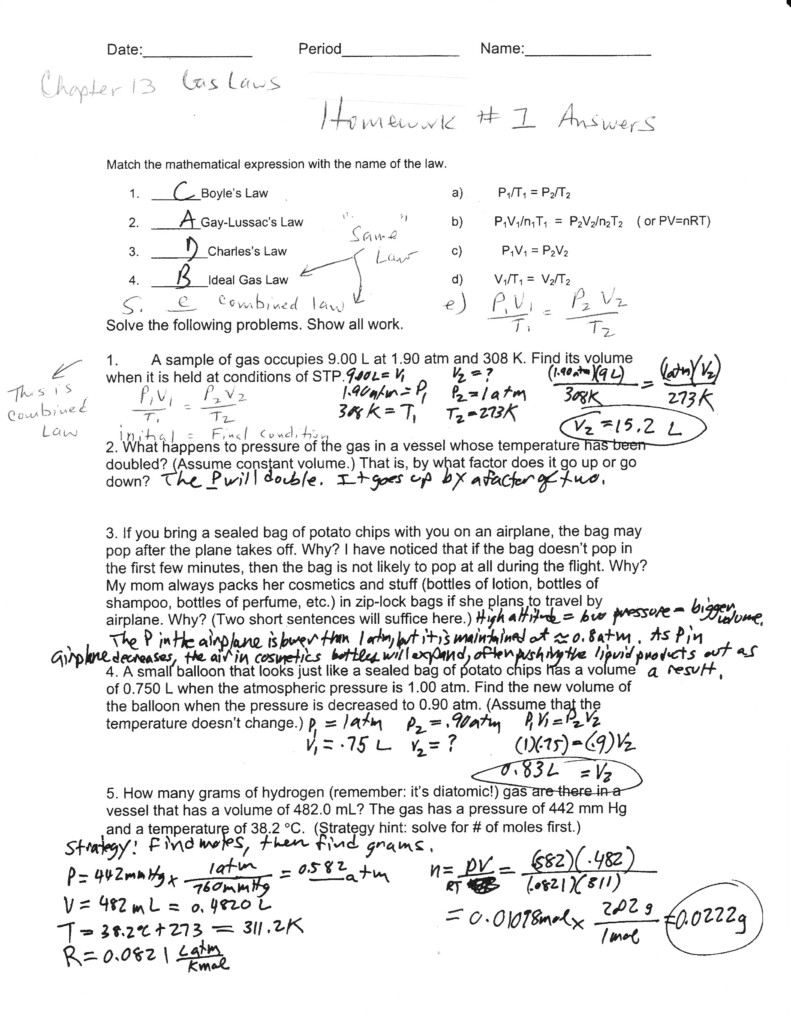 Date:____________ Period______________ Name:_______________
Chapter 13 Gas Laws
Homework # 1 Answers
Match the mathematical expression with the name of the law.
1. C Boyle's Law a) P₁/T₁ = P₂/T₂
2. A Gay-Lussac's Law b) P₁V₁/n₁T₁ = P₂V₂/n₂T₂ ( or PV=nRT)
3. D Charles's Law c) P₁V₁ = P₂V₂
4. B Ideal Gas Law d) V₁/T₁ = V₂/T₂
"Same" Law
5. e Combined law e) P₁V₁/T₁ = P₂V₂/T₂
Solve the following problems. Show all work.
1. A sample of gas occupies 9.00 L at 1.90 atm and 308 K. Find its volume
when it is held at conditions of STP.
9.00L = V₁ V₂ = ? (1.90atm)(9L)/308K = (1atm)(V₂)/273K
1.90atm = P₁ P₂ = 1atm
308K = T₁ T₂ = 273K
V₂ = 15.2 L
This is
Combined
Law
P₁V₁/T₁ = P₂V₂/T₂
initial = Final Condition
2. What happens to pressure of the gas in a vessel whose temperature has been
doubled? (Assume constant volume.) That is, by what factor does it go up or go
down? The P will double. It goes up by a factor of two.
3. If you bring a sealed bag of potato chips with you on an airplane, the bag may
pop after the plane takes off. Why? I have noticed that if the bag doesn't pop in
the first few minutes, then the bag is not likely to pop at all during the flight. Why?
My mom always packs her cosmetics and stuff (bottles of lotion, bottles of
shampoo, bottles of perfume, etc.) in zip-lock bags if she plans to travel by
airplane. Why? (Two short sentences will suffice here.) High altitude = low pressure = bigger volume.
The P in the airplane is lower than 1 atm, but it is maintained at ≈ 0.8atm. As P in
airplane decreases, the air in cosmetics bottles will expand, often pushing the liquid products out as
a result.
4. A small balloon that looks just like a sealed bag of potato chips has a volume
of 0.750 L when the atmospheric pressure is 1.00 atm. Find the new volume of
the balloon when the pressure is decreased to 0.90 atm. (Assume that the
temperature doesn't change.) P₁ = 1atm P₂ = .90atm P₁V₁ = P₂V₂
V₁ = .75 L V₂ = ? (1)(.75) = (.9)V₂
0.83L = V₂
5. How many grams of hydrogen (remember: it's diatomic!) gas are there in a
vessel that has a volume of 482.0 mL? The gas has a pressure of 442 mm Hg
and a temperature of 38.2 °C. (Strategy hint: solve for # of moles first.)
Strategy! Find moles, then find grams.
P = 442mmHg x 1atm/760mmHg = 0.582 atm n = PV/RT = (582)(.482)/(.0821)(311)
V = 482 mL = 0.4820 L
= 0.01098mol x 2.02 g/1mol = 0.0222g
T = 38.2°C + 273 = 311.2K
R = 0.0821 Latm/Kmol